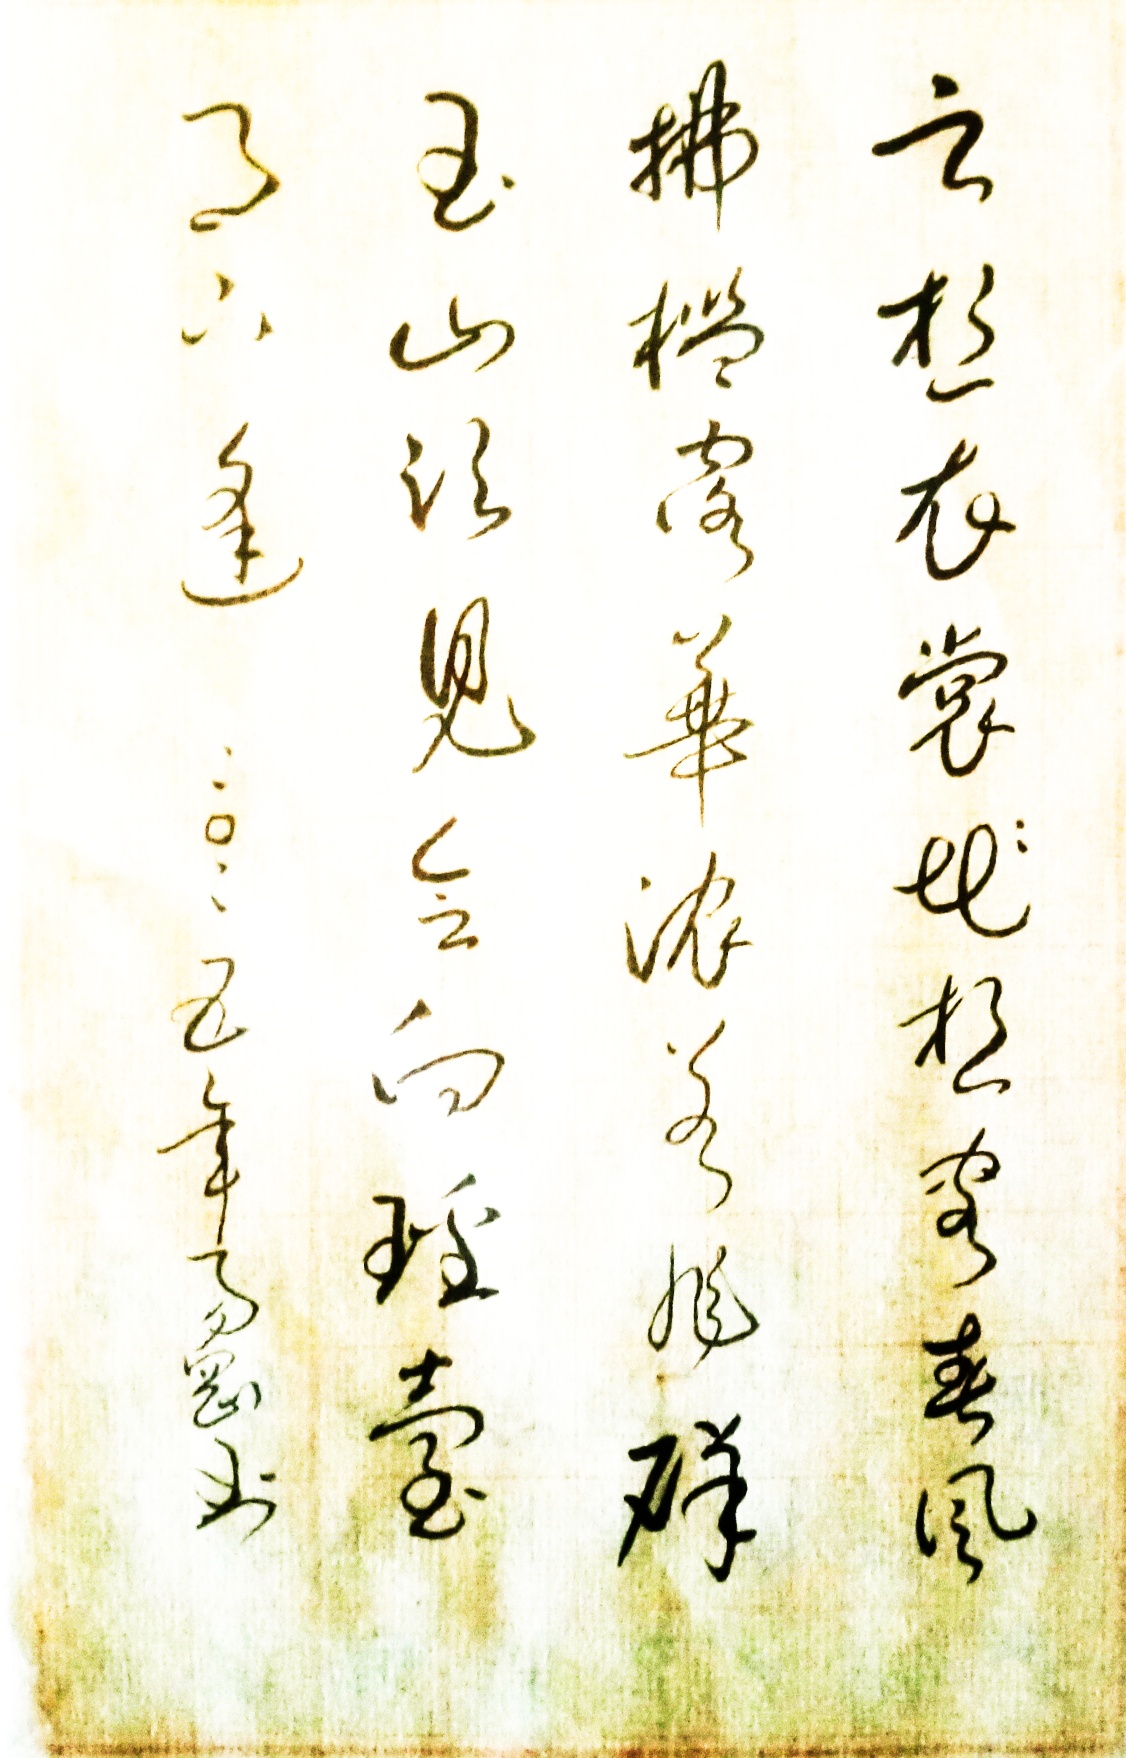 云想衣裳花想容春風
拂檻露華濃若非群
玉山頭見會向瑶臺
月下逢 二〇二五年 书